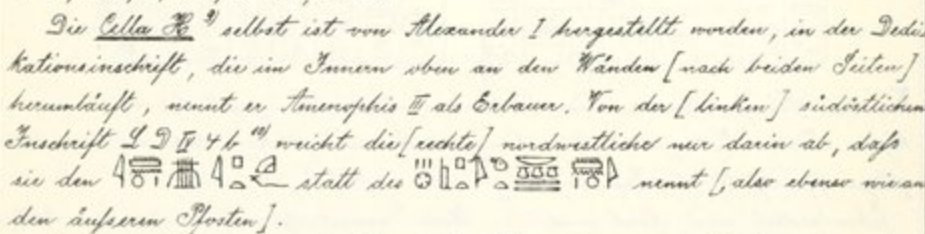 Die Cella H ⁹⁾ selbst ist von Alexander I hergestellt worden, in der Dedi
kationsinschrift, die im Innern oben an den Wänden [nach beiden Seiten]
herumläuft, nennt er Amenophis III als Erbauer. Von der [linken] südöstlichen
Inschrift L D IV 4 b ¹⁰⁾ weicht die [rechte] nordwestliche nur darin ab, daſs
sie den statt des nennt [, also ebenso wie an
den äuſseren Pfosten].